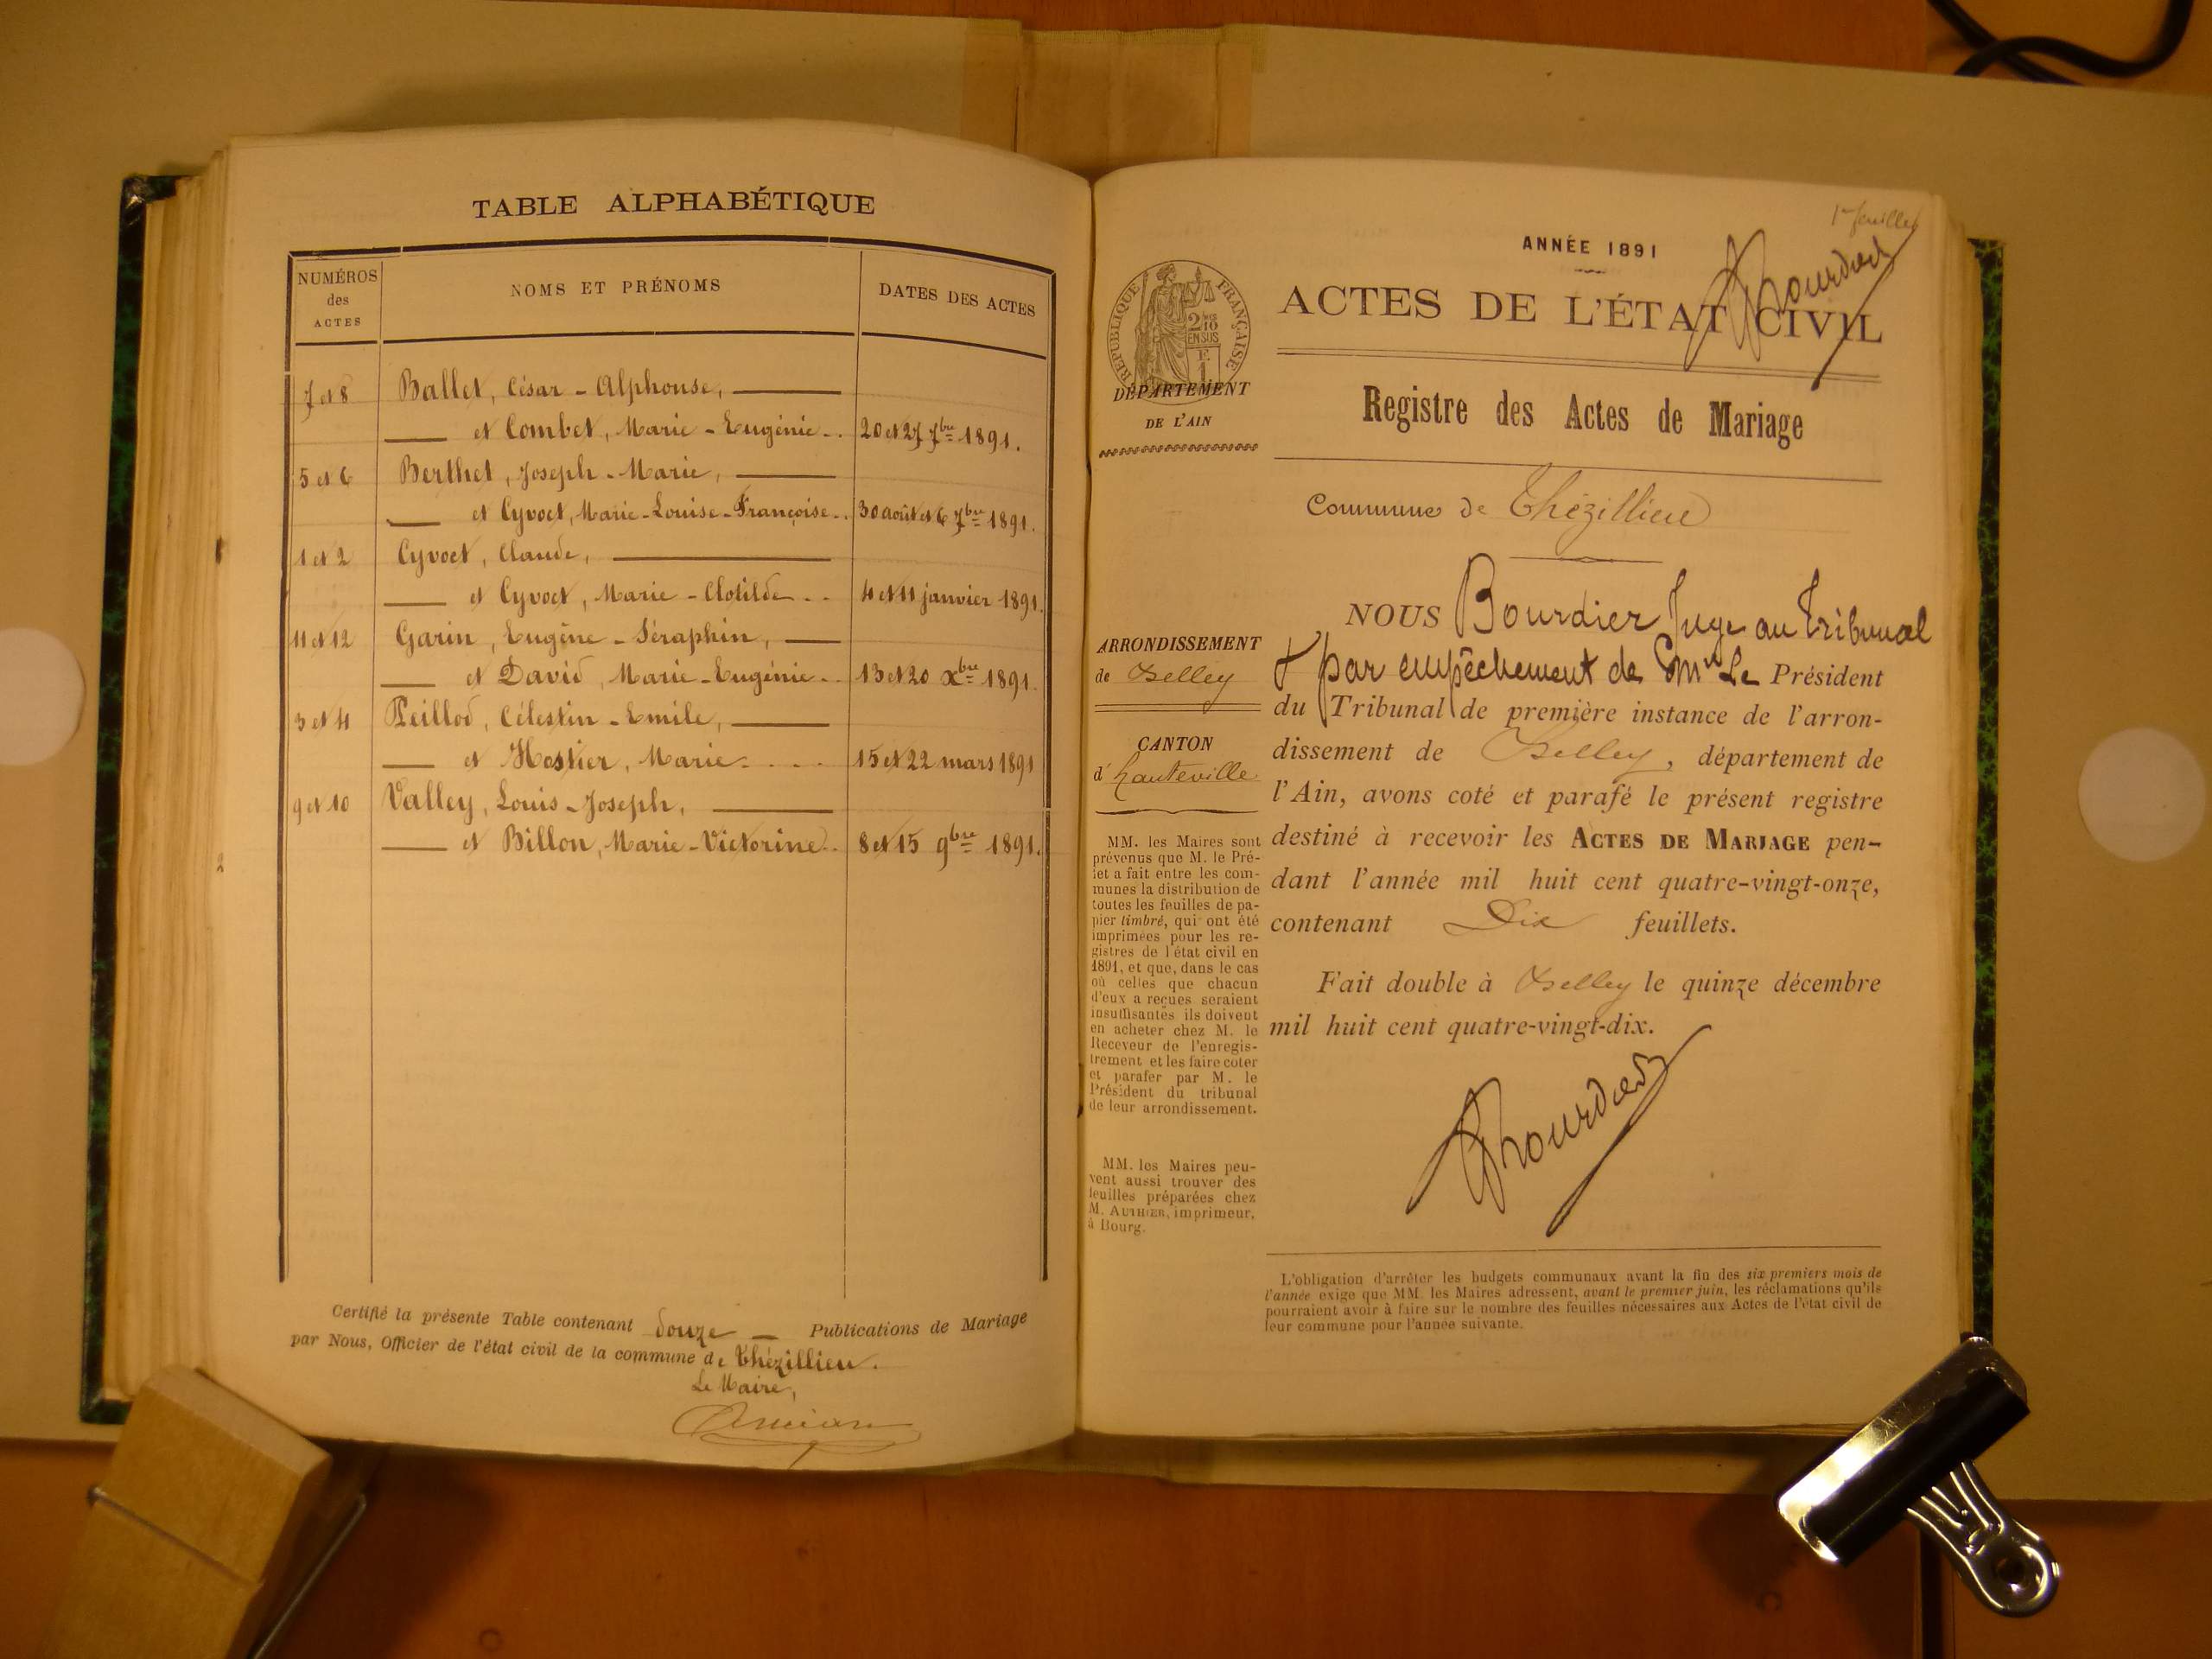 TABLE ALPHABÉTIQUE
NUMÉROS des ACTES
NOMS ET PRÉNOMS
DATES DES ACTES
7 et 8 Ballet, César - Alphonse,
et Combet, Marie - Eugénie . . 20 et 27 7bre 1891.
5 et 6 Berthet, Joseph - Marie,
et Cyvoct, Marie - Louise - Françoise . . 30 août et 6 7bre 1891.
1 et 2 Cyvoct, Claude,
et Cyvoct, Marie - Clotilde . . 4 et 11 janvier 1891.
11 et 12 Garin, Eugène - Séraphin,
et David, Marie - Eugénie . . 13 et 20 xbre 1891.
3 et 4 Peillod, Célestin - Emile,
et Hostier, Marie . . . . 15 et 22 mars 1891
9 et 10 Valley, Louis - Joseph,
et Billon, Marie - Victorine . . 8 et 15 9bre 1891.
Certifié la présente Table contenant douze — Publications de Mariage
par Nous, Officier de l'état civil de la commune de Thézillieu.
Le Maire,
1er feuillet
Bourdier
ANNÉE 1891
ACTES DE L'ÉTAT CIVIL
RÉPUBLIQUE FRANÇAISE
2/10 EN SUS
DÉPARTEMENT
DE L'AIN
Registre des Actes de Mariage
Commune de Thézillieu
ARRONDISSEMENT
de Belley
CANTON
d'hauteville
MM. les Maires sont
prévenus que M. le Pré-
fet a fait entre les com-
munes la distribution de
toutes les feuilles de pa-
pier timbré, qui ont été
imprimées pour les re-
gistres de l'état civil en
1891, et que, dans le cas
où celles que chacun
d'eux a reçues seraient
insuffisantes ils doivent
en acheter chez M. le
Receveur de l'enregis-
trement et les faire coter
et parafer par M. le
Président du tribunal
de leur arrondissement.
MM. les Maires peu-
vent aussi trouver des
feuilles préparées chez
M. AUTHIER, imprimeur,
à Bourg.
NOUS Bourdier Juge au Tribunal
& par empêchement de Mr Le Président
du Tribunal de première instance de l'arron-
dissement de Belley, département de
l'Ain, avons coté et parafé le présent registre
destiné à recevoir les ACTES DE MARIAGE pen-
dant l'année mil huit cent quatre-vingt-onze,
contenant Dix feuillets.
Fait double à Belley le quinze décembre
mil huit cent quatre-vingt-dix.
Bourdier
L'obligation d'arrêter les budgets communaux avant la fin des six premiers mois de
l'année exige que MM. les Maires adressent, avant le premier juin, les réclamations qu'ils
pourraient avoir à faire sur le nombre des feuilles nécessaires aux Actes de l'état civil de
leur commune pour l'année suivante.